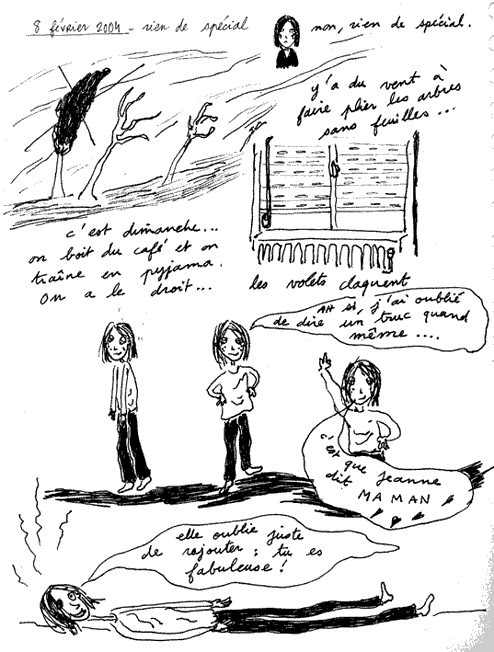 8 février 2004 - rien de spécial
non, rien de spécial.
y'a du vent à
faire plier les arbres
sans feuilles...
c'est dimanche...
on boit du café et on
traîne en pyjama.
On a le droit...
les volets claquent
AH si, j'ai oublié
de dire un truc quand
même....
c'est
que Jeanne
dit
MAMAN
elle oublie juste
de rajouter : tu es
fabuleuse !